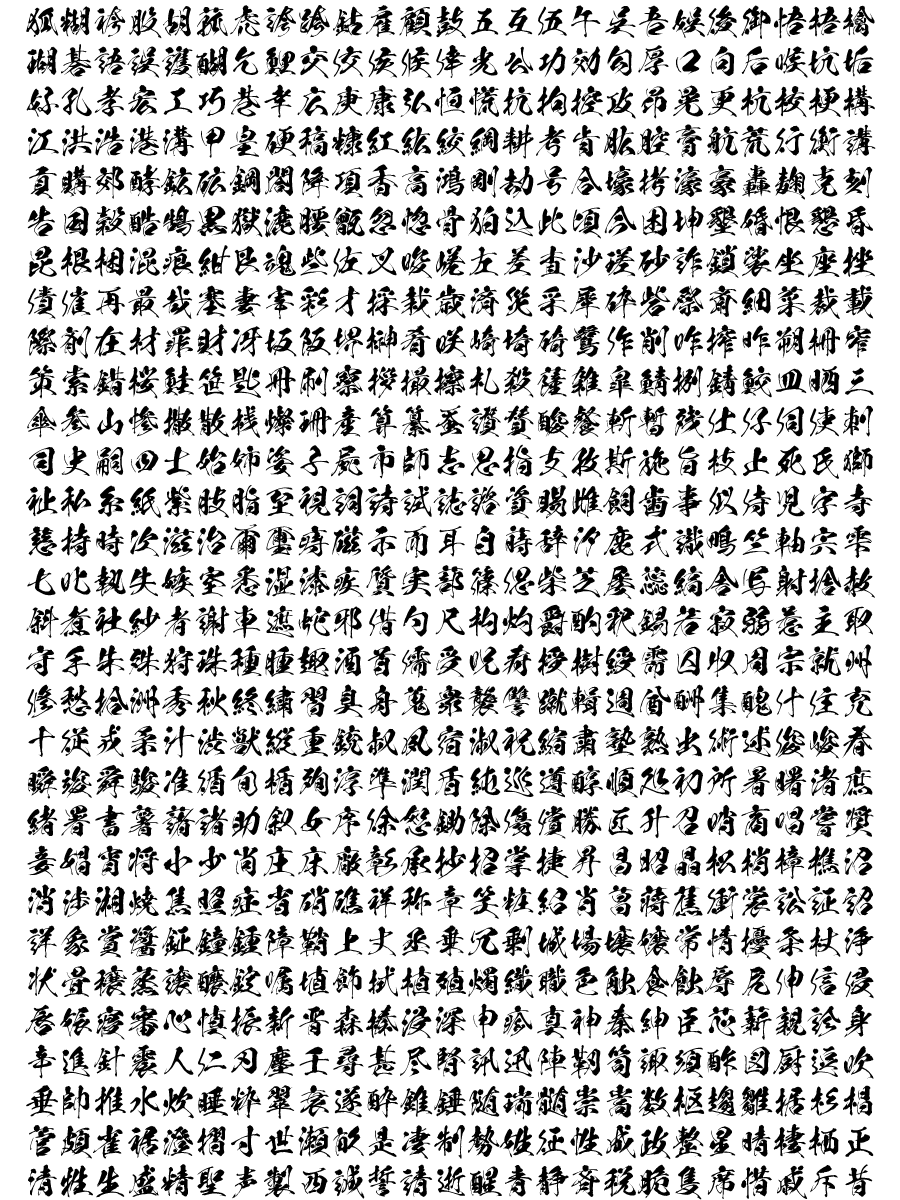 狐糊袴股胡菰虎誇跨鈷雇顧鼓五互伍午呉吾娯後御悟梧檎
瑚碁語誤護醐乞鯉交佼侯候倖光公功効勾厚口向后喉坑垢
好孔孝宏工巧巷幸広庚康弘恒慌抗拘控攻昂晃更杭校梗構
江洪浩港溝甲皇硬稿糠紅紘絞綱耕考肯肱腔膏航荒行衡講
貢購郊酵鉱砿鋼閤降項香高鴻剛劫号合壕拷濠豪轟麹克刻
告国穀酷鵠黒獄漉腰甑忽惚骨狛込此頃今困坤墾婚恨懇昏
昆根梱混痕紺艮魂些佐叉唆嵯左差査沙瑳砂詐鎖裟坐座挫
債催再最哉塞妻宰彩才採栽歳済災采犀砕砦祭斎細菜裁載
際剤在材罪財冴坂阪堺榊肴咲崎埼碕鷺作削咋搾昨朔柵窄
策索錯桜鮭笹匙冊刷察拶撮擦札殺薩雑皐鯖捌錆鮫皿晒三
傘参山惨撒散桟燦珊産算纂蚕讃賛酸餐斬暫残仕仔伺使刺
司史嗣四士始姉姿子屍市師志思指支孜斯施旨枝止死氏獅
祉私糸紙紫肢脂至視詞詩試誌諮資賜雌飼歯事似侍児字寺
慈持時次滋治爾璽痔磁示而耳自蒔辞汐鹿式識鴫竺軸宍雫
七叱執失嫉室悉湿漆疾質実蔀篠偲柴芝屡蕊縞舎写射捨赦
斜煮社紗者謝車遮蛇邪借勺尺杓灼爵酌釈錫若寂弱惹主取
守手朱殊狩珠種腫趣酒首儒受呪寿授樹綬需囚収周宗就州
修愁拾洲秀秋終繍習臭舟蒐衆襲讐蹴輯週酋酬集醜什住充
十従戎柔汁渋獣縦重銃叔夙宿淑祝縮粛塾熟出術述俊峻春
瞬竣舜駿准循旬楯殉淳準潤盾純巡遵醇順処初所暑曙渚庶
緒署書薯藷諸助叙女序徐恕鋤除傷償勝匠升召哨商唱嘗奨
妾娼宵将小少尚庄床廠彰承抄招掌捷昇昌昭晶松梢樟樵沼
消渉湘焼焦照症省硝礁祥称章笑粧紹肖菖蒋蕉衝裳訟証詔
詳象賞醤鉦鐘鍾障鞘上丈丞乗冗剰城場壌嬢常情擾条杖浄
状畳穣蒸譲醸錠嘱埴飾拭植殖燭織職色触食蝕辱尻伸信侵
唇娠寝審心慎振新晋森榛浸深申疹真神秦紳臣芯薪親診身
辛進針震人仁刃塵壬尋甚尽腎訊迅陣靭笥諏須酢図厨逗吹
垂帥推水炊睡粋翠衰遂酔錐錘随瑞髄崇嵩数枢趨雛据杉椙
菅頗雀裾澄摺寸世瀬畝是凄制勢姓征性成政整星晴棲栖正
清牲生盛精聖声製西誠誓請逝醒青静斉税脆隻席惜戚斥昔